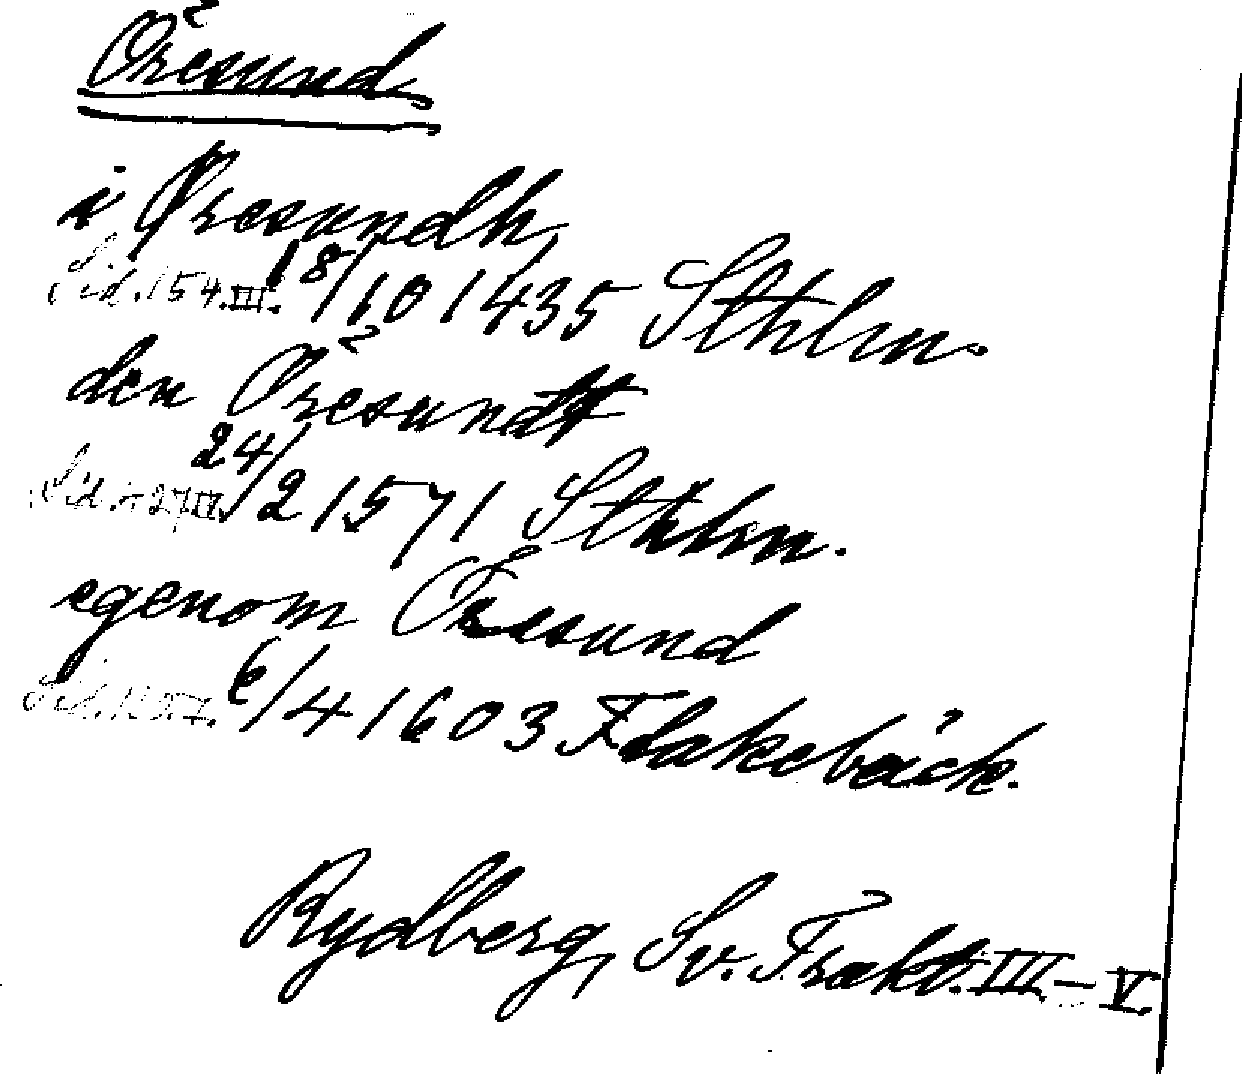 Öresund
i Øresundh
Sid. 154. III. 18/10 1435 Sthlm.
den Öresundt
Sid. 427 IV. 24/2 1571 Sthlm.
egenom Öresund
6/4 1603 Flakebäck.
Rydberg, Sv. Trakt. III – V.